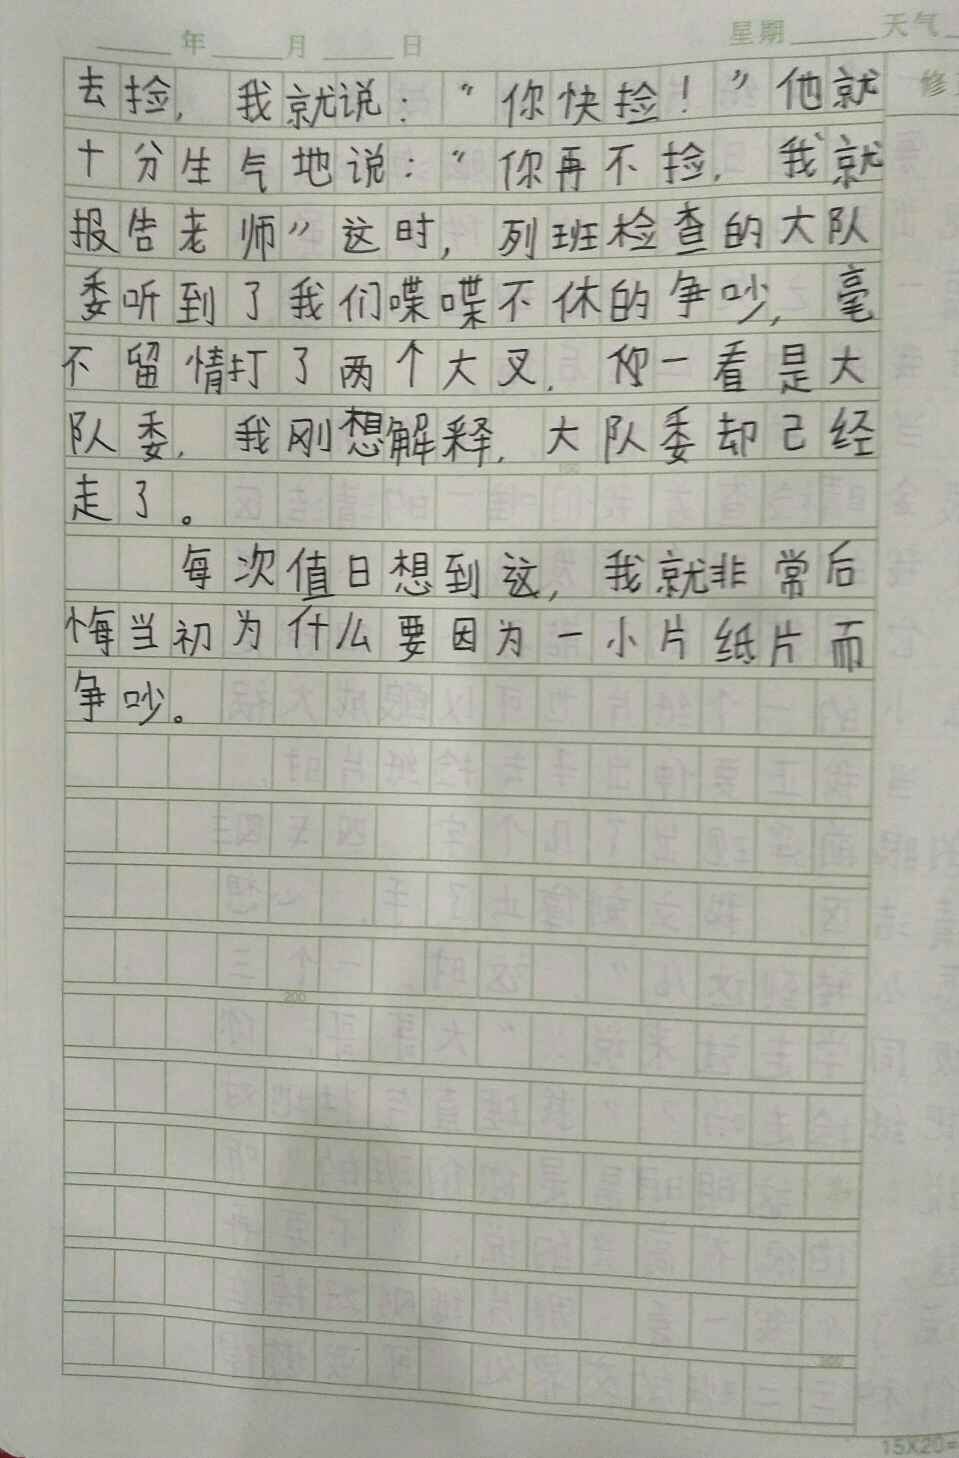 年 月 日 星期 天气
去捡，我就说：“你快捡！”他就
十分生气地说：“你再不捡，我就
报告老师”这时，列班检查的大队
委听到了我们喋喋不休的争吵，毫
不留情打了两个大叉．你一看是大
队委，我刚想解释，大队委却己经
走了。
每次值日想到这，我就非常后
悔当初为什么要因为一小片纸片而
争吵。
200
15X20=